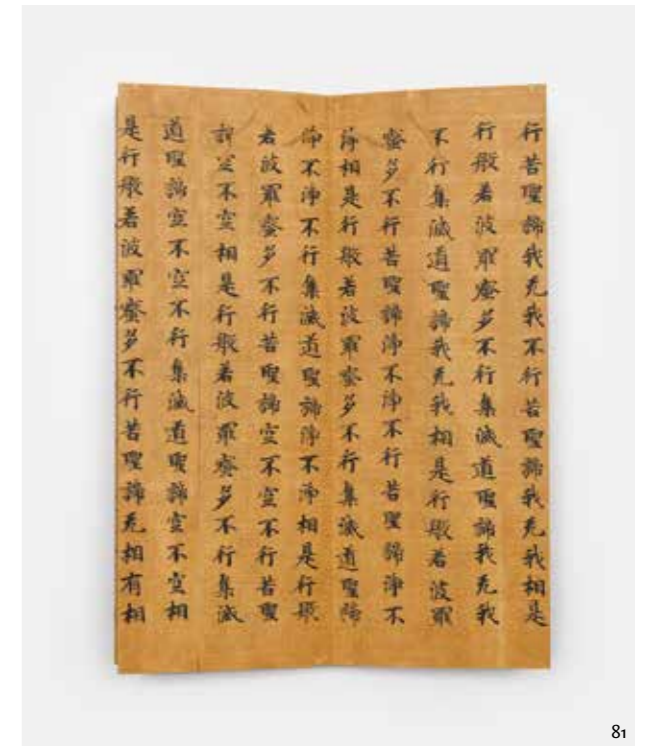 行苦聖諦我无我不行苦聖諦我无我相是
行般若波羅蜜多不行集滅道聖諦我无我
不行集滅道聖諦我无我相是行般若波羅
蜜多不行苦聖諦淨不淨不行苦聖諦淨不
淨相是行般若波羅蜜多不行集滅道聖諦
淨不淨不行集滅道聖諦淨不淨相是行般
若波羅蜜多不行苦聖諦空不空不行苦聖
諦空不空相是行般若波羅蜜多不行集滅
道聖諦空不空不行集滅道聖諦空不空相
是行般若波羅蜜多不行苦聖諦无相有相
81